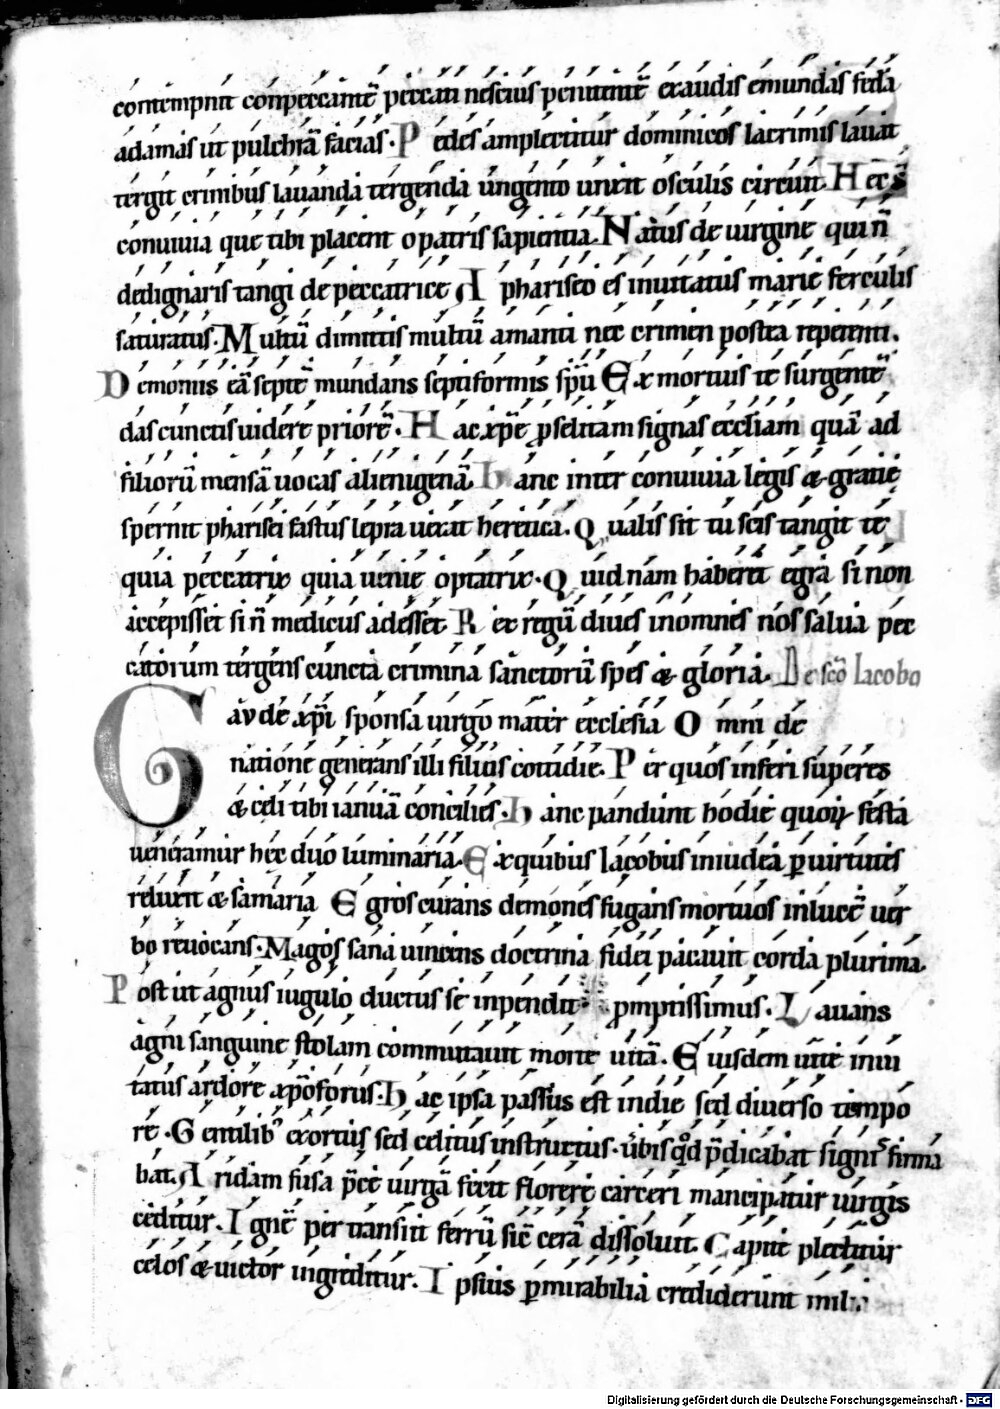 contempnit conpeccante peccati nescius penitente exaudis emundas feda
adamas ut pulchrā facias. Pedes amplectitur dominicos lacrimis lauat
tergit crinibus lauanda tergenda ungento unxit osculis circuit. Hec s̄
conuiuia que tibi placent o patris sapientia. Natus de uirgine qui n̄
dedignaris tangi de peccatrice A phariseo es inuitatus marie ferculis
saturatus. Multū dimittis multū amanti nec crimen postea repetenti.
Demoniis eā septē mundans septiformis spū Ex mortuis te surgentē
das cunctis uidere priorē. Hac xpē pselitam signas eccliam quā ad
filiorū mensā uocas alienigenā. Hanc inter conuiuia legis & gratie
spernit pharisei fastus lepra uexat heretica. Qualis sit tu scis tangit te
quia peccatrix quia uenie optatrix. Quidnam haberet egra si non
accepisset si n̄ medicus adesset Rex regū diues inomnes nos salua pec
catorum tergens cuncta crimina sanctorū spes & gloria. De scō Iacobo
Gaude xpi sponsa uirgo mater ecclesia Omni de
natione generans illi filius cottidie. Per quos inferi superēs
& celi tibi ianuā concilies. Hanc pandunt hodie quoꝝ festa
ueneramur hec duo luminaria. Ex quibus Iacobus iniudea puirtutis
reluxit & samaria Egros curans demones fugans mortuos inlucē uer
bo reuocans. Magos sana uincens doctrina fidei pacauit corda plurima.
Post ut agnus iugulo ductus se inpendit pmptissimus. Lauans
agni sanguine stolam commutauit morte uitā. Eiusdem uite imi
tatus ardore xpoforus. Hac ipsa passus est in die sed diuerso tempo
re. Gentilib' exortus sed celitus instructus. uerbis qd pdicabat signis firma
bat. Aridam fusa pce uirgā fecit florere carceri mancipatur uirgis
ceditur. Ignē per transiit ferrū sic cerā dissoluit. Capite plectitur
celos & uictor ingreditur. Ipsius pmirabilia crediderunt
Digitalisierung gefördert durch die Deutsche Forschungsgemeinschaft - DFG